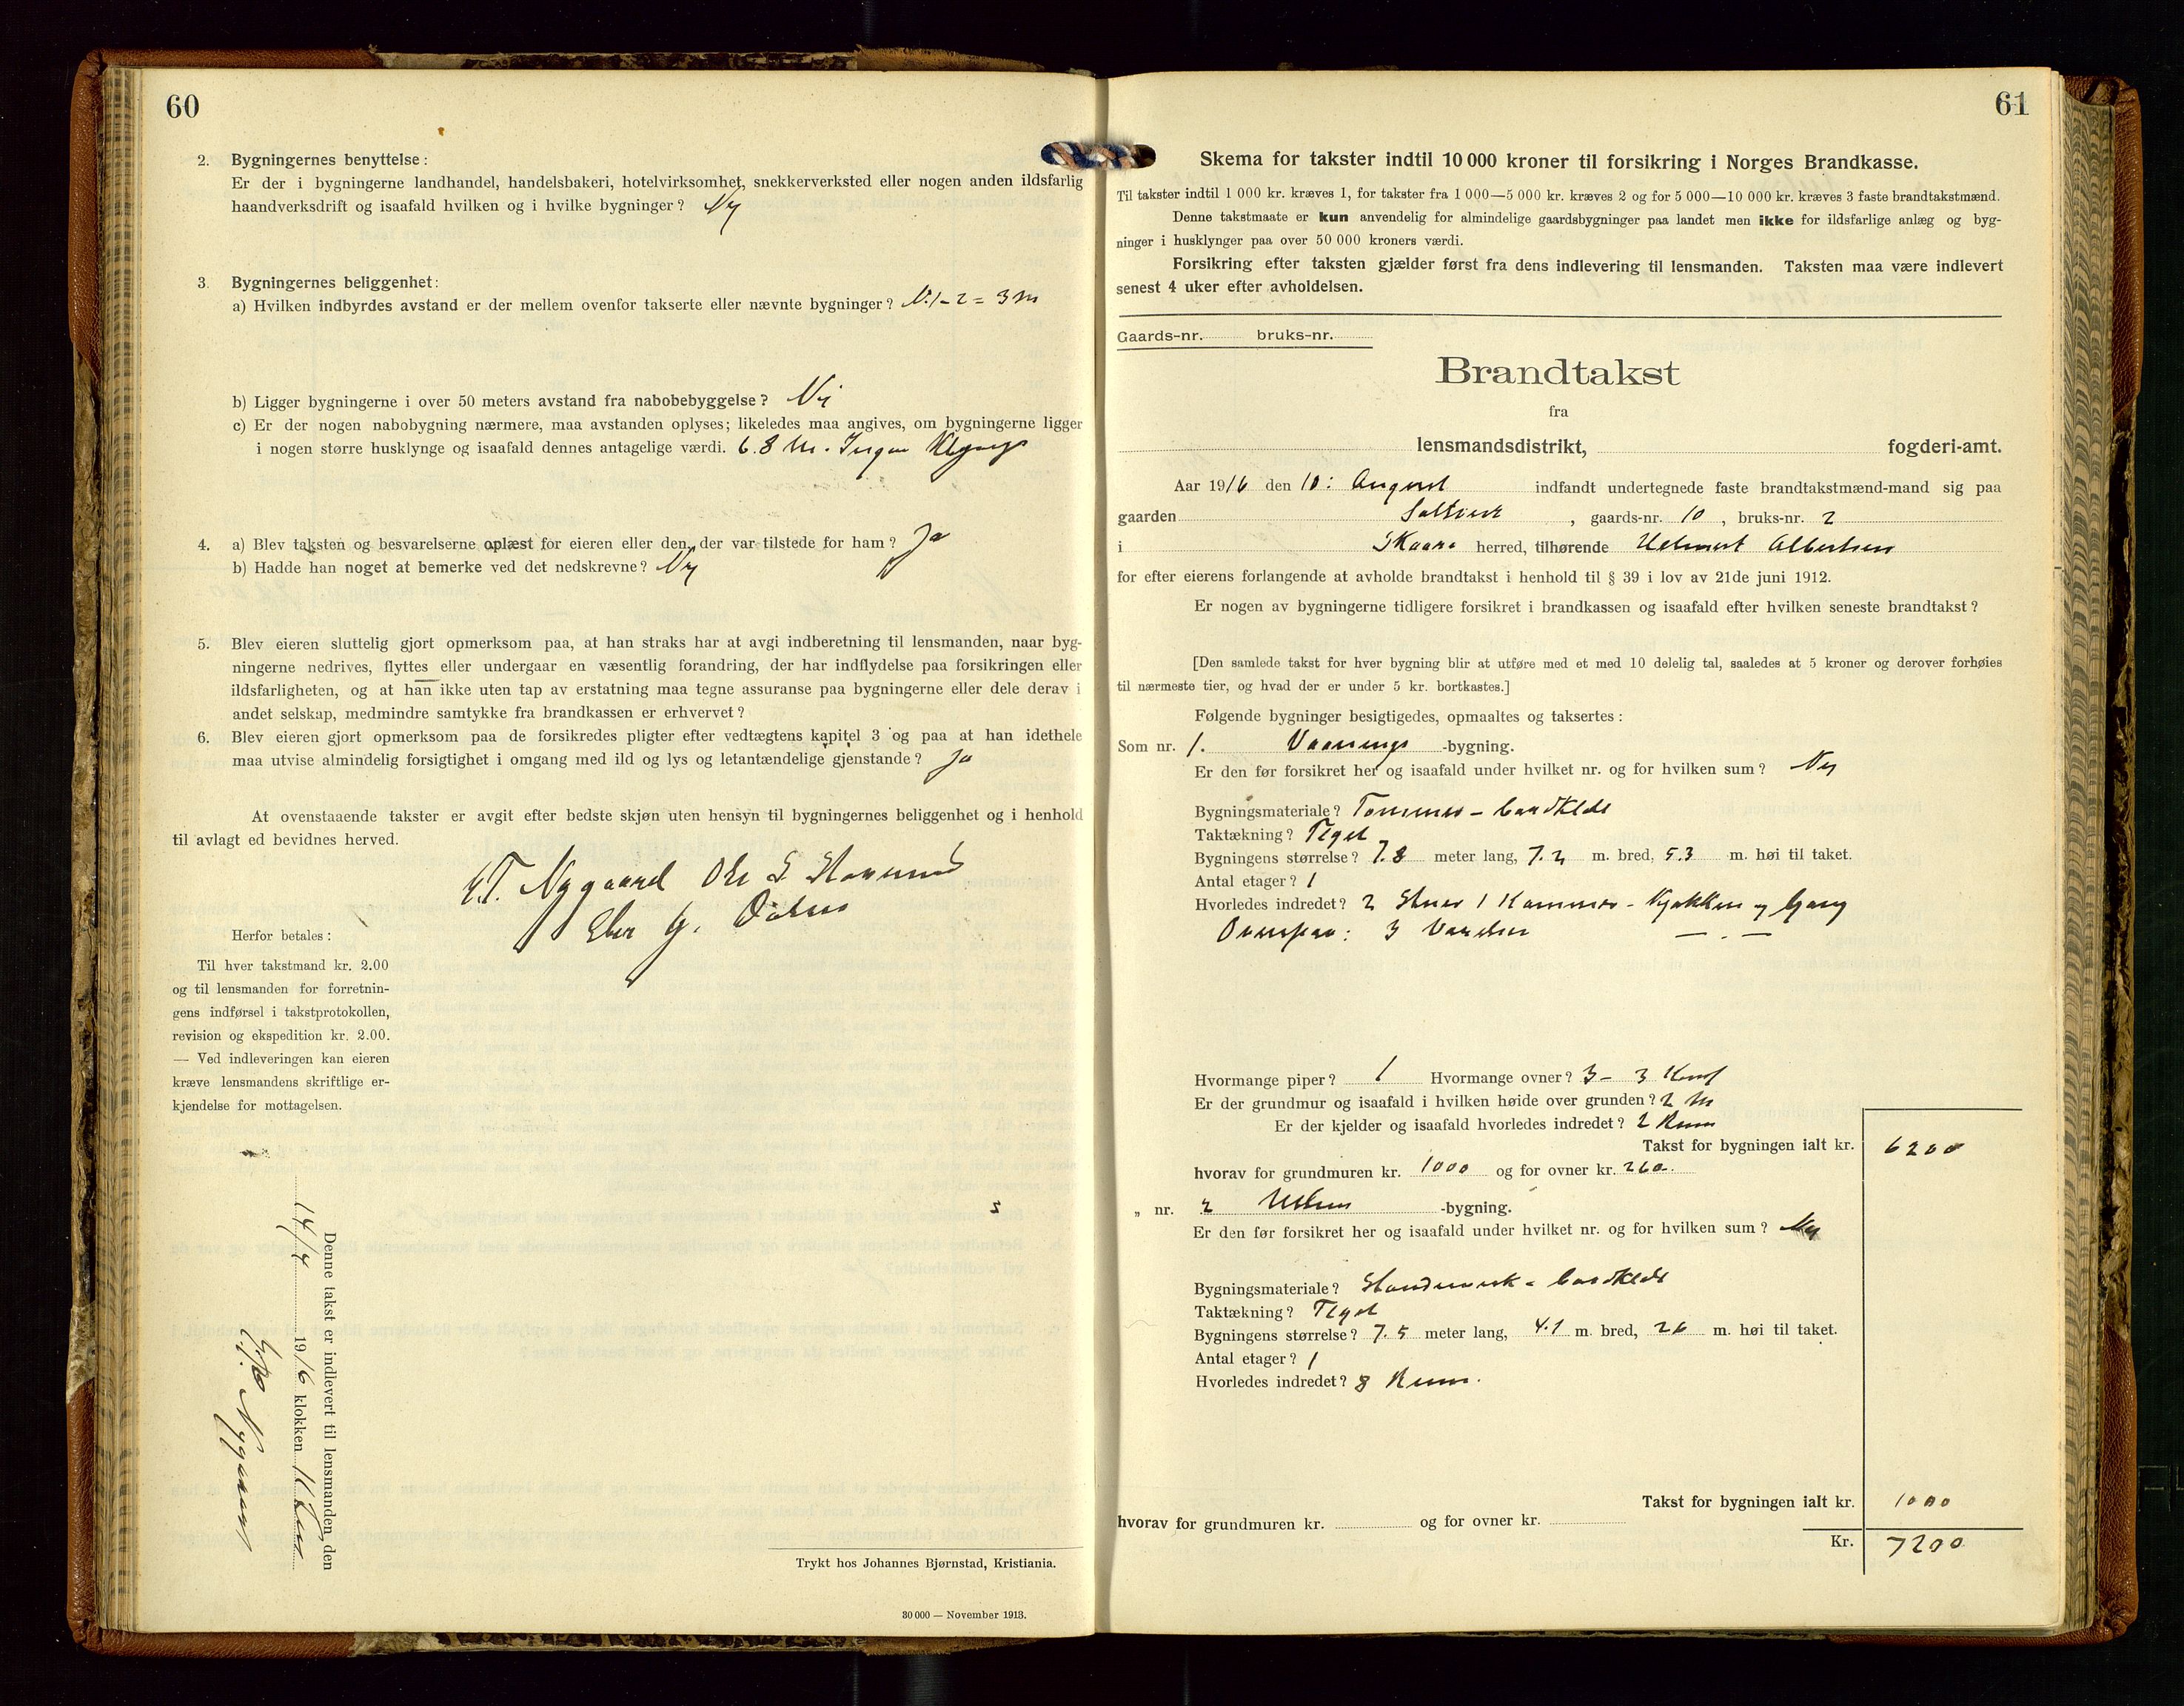 60
2. Bygningernes benyttelse:
Er der i bygningerne landhandel, handelsbakeri, hotelvirksomhet, snekkerverksted eller nogen anden ildsfarlig
haandverksdrift og isaafald hvilken og i hvilke bygninger? Nej
3. Bygningernes beliggenhet:
a) Hvilken indbyrdes avstand er der mellem ovenfor takserte eller nævnte bygninger? N. 1-2 = 3 m
b) Ligger bygningerne i over 50 meters avstand fra nabobebyggelse? Nej
c) Er der nogen nabobygning nærmere, maa avstanden oplyses; likeledes maa angives, om bygningerne ligger
i nogen større husklynge og isaafald dennes antagelige værdi. 6.8 m. Ingen
4. a) Blev taksten og besvarelserne oplæst for eieren eller den, der var tilstede for ham? Ja
b) Hadde han noget at bemerke ved det nedskrevne? Nej
5. Blev eieren sluttelig gjort opmerksom paa, at han straks har at avgi indberetning til lensmanden, naar byg-
ningerne nedrives, flyttes eller undergaar en væsentlig forandring, der har indflydelse paa forsikringen eller
ildsfarligheten, og at han ikke uten tap av erstatning maa tegne assuranse paa bygningerne eller dele derav i
andet selskap, medmindre samtykke fra brandkassen er erhvervet?
6. Blev eieren gjort opmerksom paa de forsikredes pligter efter vedtægtens kapitel 3 og paa at han idethele
maa utvise almindelig forsigtighet i omgang med ild og lys og letantændelige gjenstande? Ja
At ovenstaaende takster er avgit efter bedste skjøn uten hensyn til bygningernes beliggenhet og i henhold
til avlagt ed bevidnes herved.
Nygaard
Herfor betales:
Til hver takstmand kr. 2.00
og til lensmanden for forretnin-
gens indførsel i takstprotokollen,
revision og ekspedition kr. 2.00.
— Ved indleveringen kan eieren
kræve lensmandens skriftlige er-
kjendelse for mottagelsen.
Denne takst er indlevert til lensmanden den
1916 klokken
Nygaard
Trykt hos Johannes Bjørnstad, Kristiania.
30 000 — November 1913.
61
Skema for takster indtil 10 000 kroner til forsikring i Norges Brandkasse.
Til takster indtil 1 000 kr. kræves 1, for takster fra 1 000—5 000 kr. kræves 2 og for 5 000—10 000 kr. kræves 3 faste brandtakstmænd.
Denne takstmaate er kun anvendelig for almindelige gaardsbygninger paa landet men ikke for ildsfarlige anlæg og byg-
ninger i husklynger paa over 50 000 kroners værdi.
Forsikring efter taksten gjælder først fra dens indlevering til lensmanden. Taksten maa være indlevert
senest 4 uker efter avholdelsen.
Gaards-nr. bruks-nr.
Brandtakst
fra
lensmandsdistrikt, fogderi-amt.
Aar 1916 den 10: August indfandt undertegnede faste brandtakstmænd-mand sig paa
gaarden , gaards-nr. 10, bruks-nr. 2
i Skaare herred, tilhørende Albertsen
for efter eierens forlangende at avholde brandtakst i henhold til § 39 i lov av 21de juni 1912.
Er nogen av bygningerne tidligere forsikret i brandkassen og isaafald efter hvilken seneste brandtakst?
[Den samlede takst for hver bygning blir at utføre med et med 10 delelig tal, saaledes at 5 kroner og derover forhøies
til nærmeste tier, og hvad der er under 5 kr. bortkastes.]
Følgende bygninger besigtigedes, opmaaltes og taksertes:
Som nr. 1. Vaanings-bygning.
Er den før forsikret her og isaafald under hvilket nr. og for hvilken sum? Nej
Bygningsmateriale? Tømmer - bordklædt
Taktækning? Tegel
Bygningens størrelse? 7.8 meter lang, 7.2 m. bred, 5.3 m. høi til taket.
Antal etager? 1
Hvorledes indredet? 2 Stuer 1 Kammer - Kjøkken og Gang
Ovenpaa: 3 Værelser — . —
Hvormange piper? 1 Hvormange ovner? 3 - 3 Komf
Er der grundmur og isaafald i hvilken høide over grunden? 2 m
Er der kjelder og isaafald hvorledes indredet? 2 Rum
Takst for bygningen ialt kr. 6200
hvorav for grundmuren kr. 1000 og for ovner kr. 260.
„ nr. 2 -bygning.
Er den før forsikret her og isaafald under hvilket nr. og for hvilken sum? Nej
Bygningsmateriale? Standverk - bordklædt
Taktækning? Tegel
Bygningens størrelse? 7.5 meter lang, 4.1 m. bred, 2.6 m. høi til taket.
Antal etager? 1
Hvorledes indredet? 8 Rum.
Takst for bygningen ialt kr. 1000
hvorav for grundmuren kr. og for ovner kr.
Kr. 7200